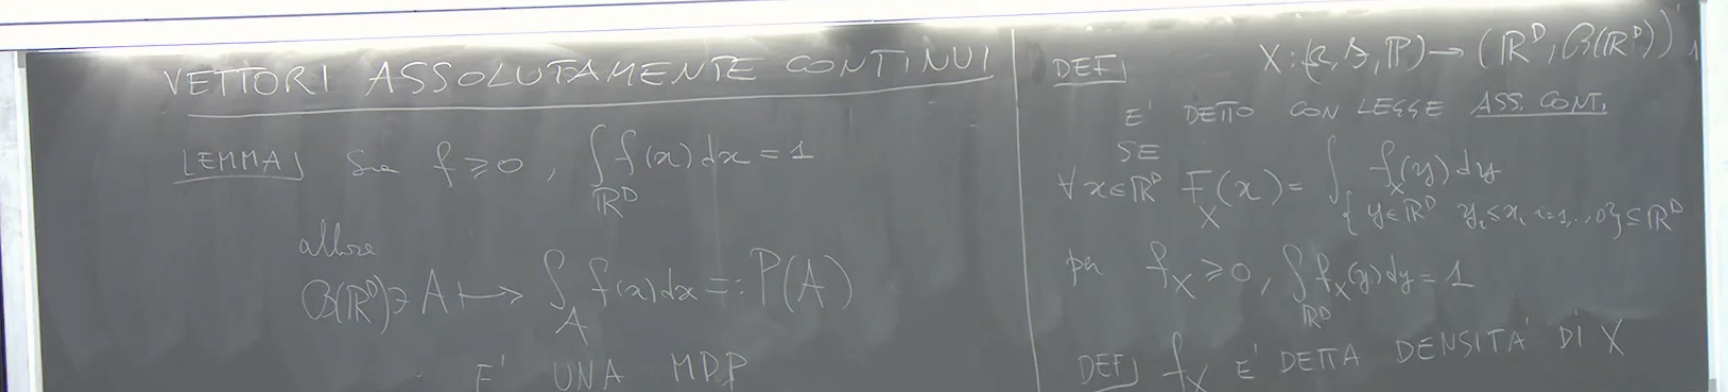 VETTORI ASSOLUTAMENTE CONTINUI
LEMMA] Sia f ≥ 0, ∫_{ℝ^D} f(x) dx = 1
allora
B(ℝ^D) ∋ A ↦ ∫_A f(x) dx =: P(A)
E' UNA MDP
DEF] X : (Ω, 𝓕, ℙ) → (ℝ^D, B(ℝ^D))
E' DETTO CON LEGGE ASS. CONT.
SE
∀ x ∈ ℝ^D F_X(x) = ∫_{{y ∈ ℝ^D y_i ≤ x_i i=1,..,D} ⊆ ℝ^D} f_X(y) dy
per f_X ≥ 0, ∫_{ℝ^D} f_X(y) dy = 1
DEF] f_X E' DETTA DENSITA' DI X